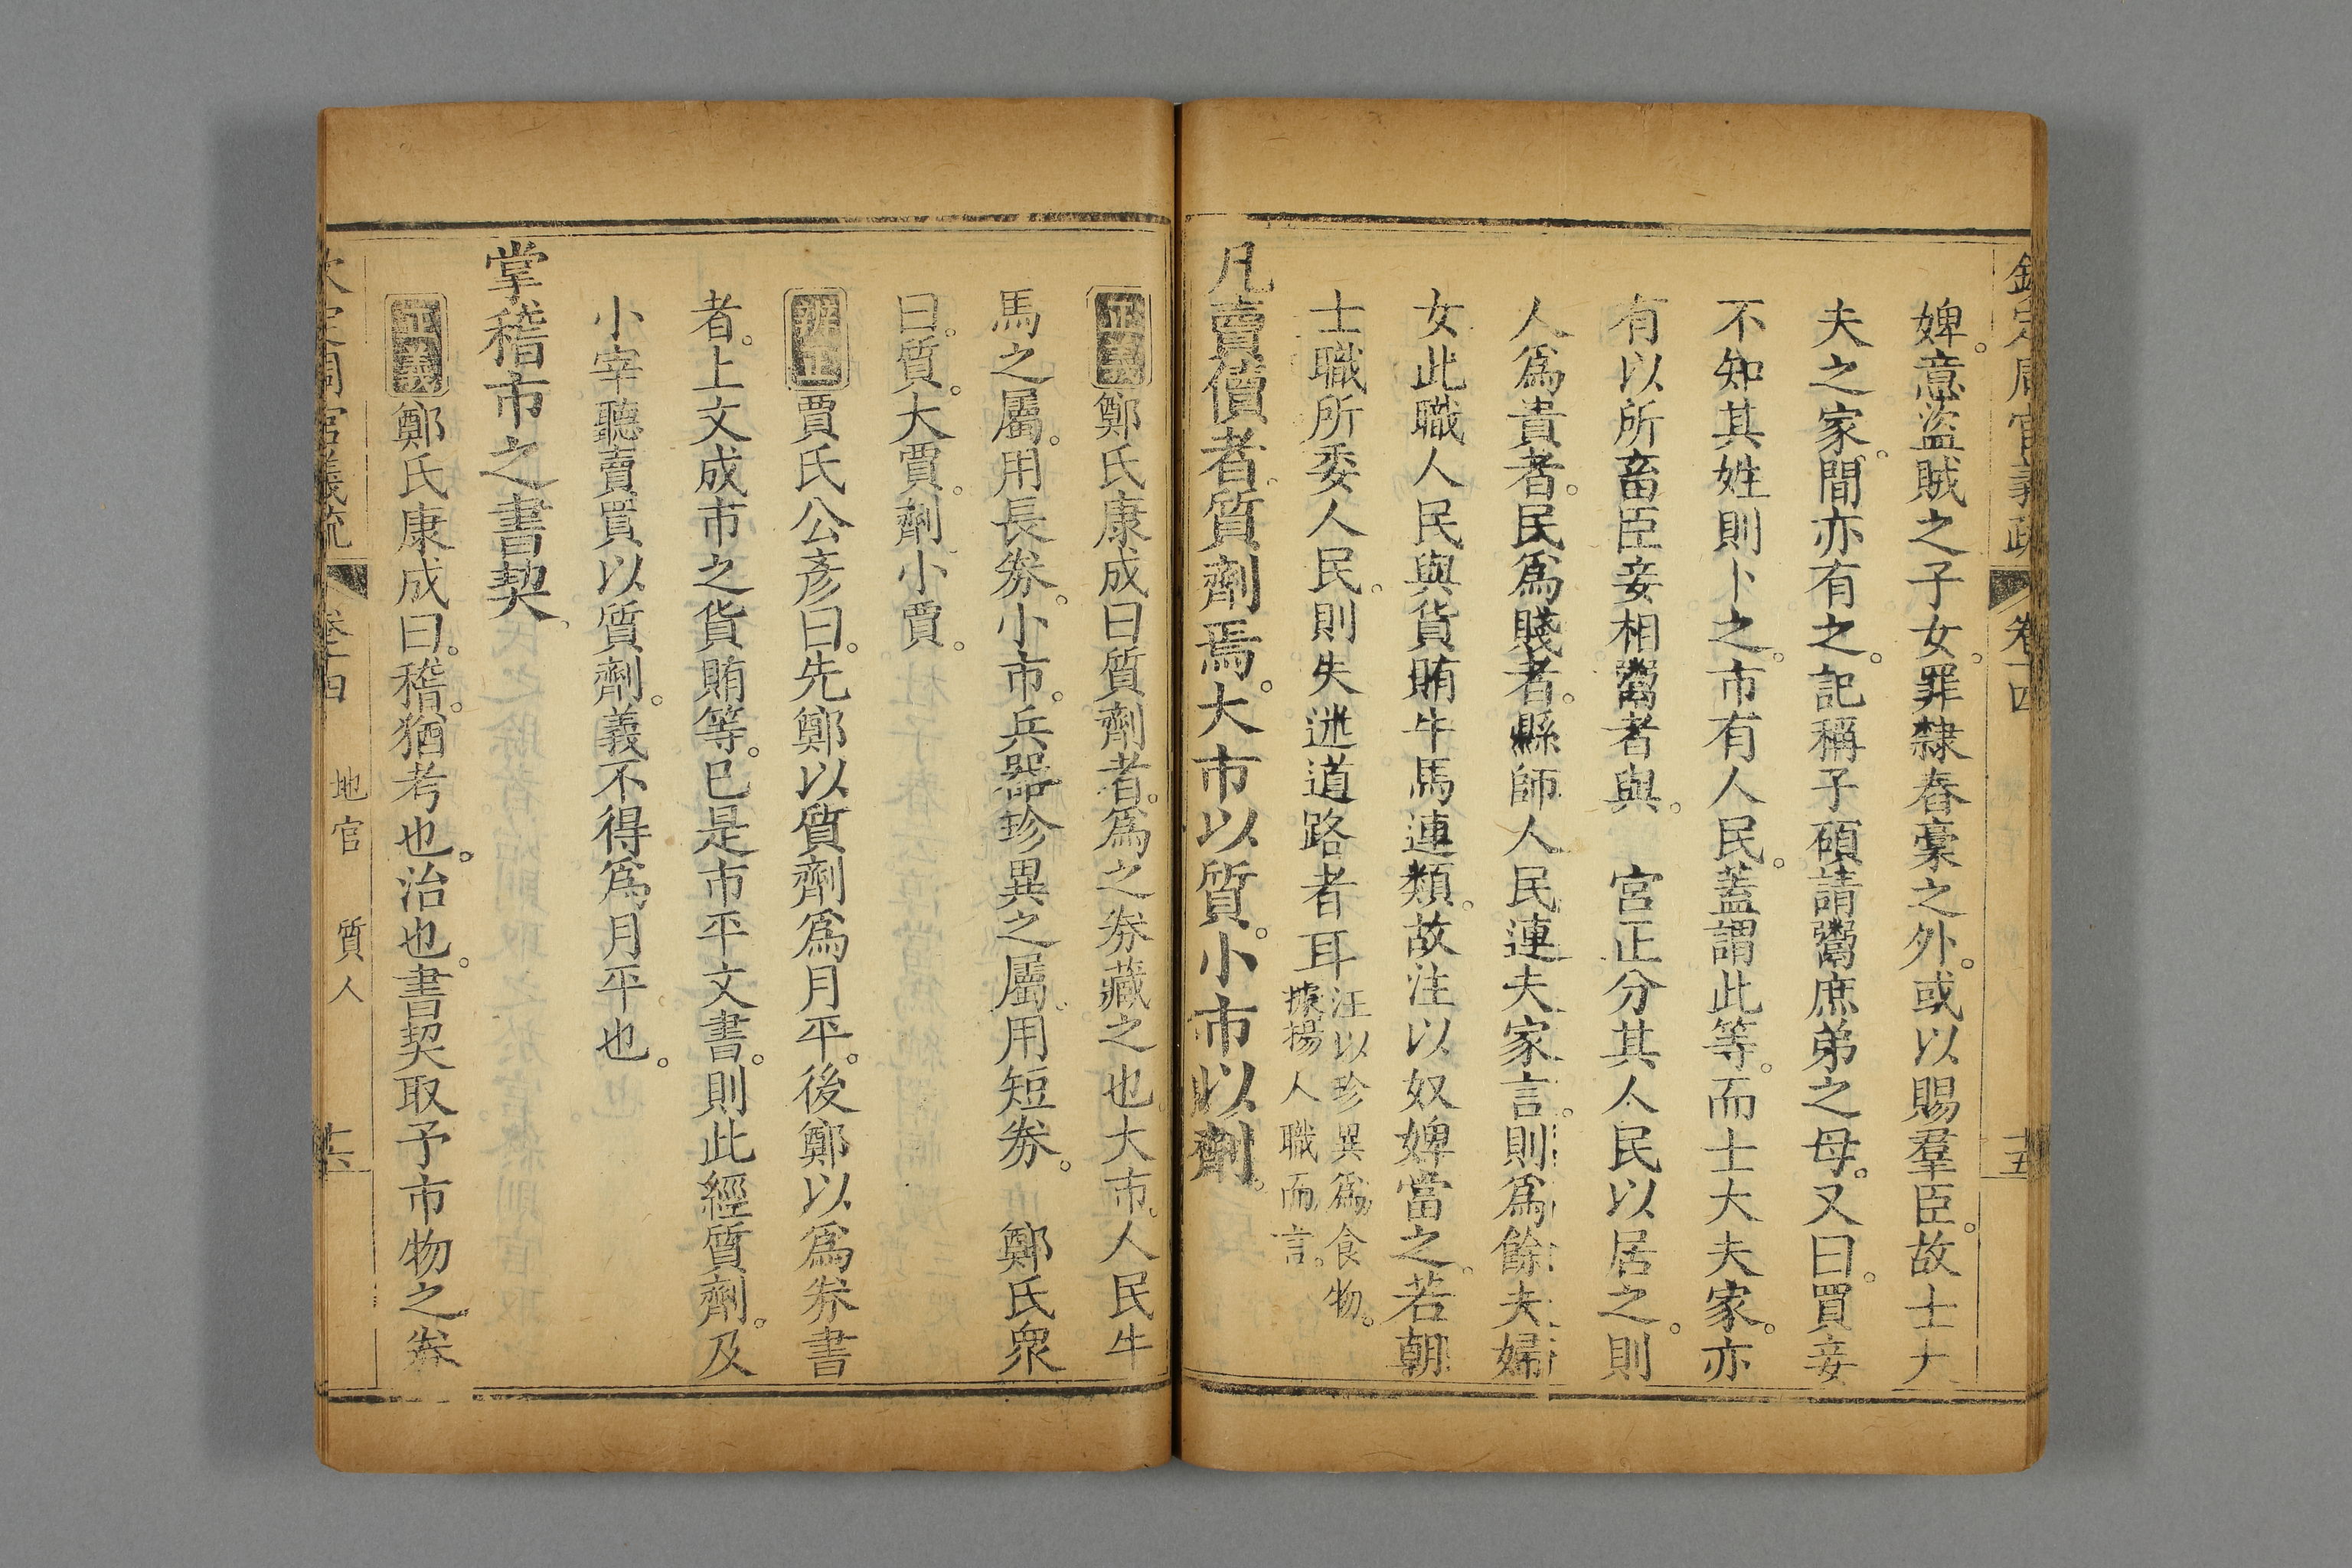 欽定周官義疏 卷十四 十五
婢。意盜賊之子女。罪隸舂稾之外。或以賜羣臣。故士大
夫之家。間亦有之。記稱子碩請鬻庶弟之母。又曰。買妾
不知其姓則卜之。市有人民。蓋謂此等。而士大夫家。亦
有以所畜臣妾相鬻者與。 宮正分其人民以居之。則
人爲貴者。民爲賤者。縣師人民連夫家言。則爲餘夫婦
女此職人民與貨賄牛馬連類。故注以奴婢當之。若朝
士職所委人民。則失逃道路者耳注以珍異爲食物。
據楊人職而言。
凡賣儥者。質劑焉。大市以質。小市以劑。
正義鄭氏康成曰質劑者。爲之券藏之也。大市。人民牛
馬之屬。用長券。小市。兵器珍異之屬。用短券。 鄭氏衆
曰。質。大賈。劑小賈。
辨正賈氏公彥曰。先鄭以質劑爲月平。後鄭以爲券書
者。上文成市之貨賄等。已是市平文書。則此經質劑。及
小宰聽賣買以質劑。義不得爲月平也。
掌稽市之書契、
正義鄭氏康成曰。稽。猶考也。治也。書契取予市物之券
欽定周官義疏 卷十四 地官 質人 十六